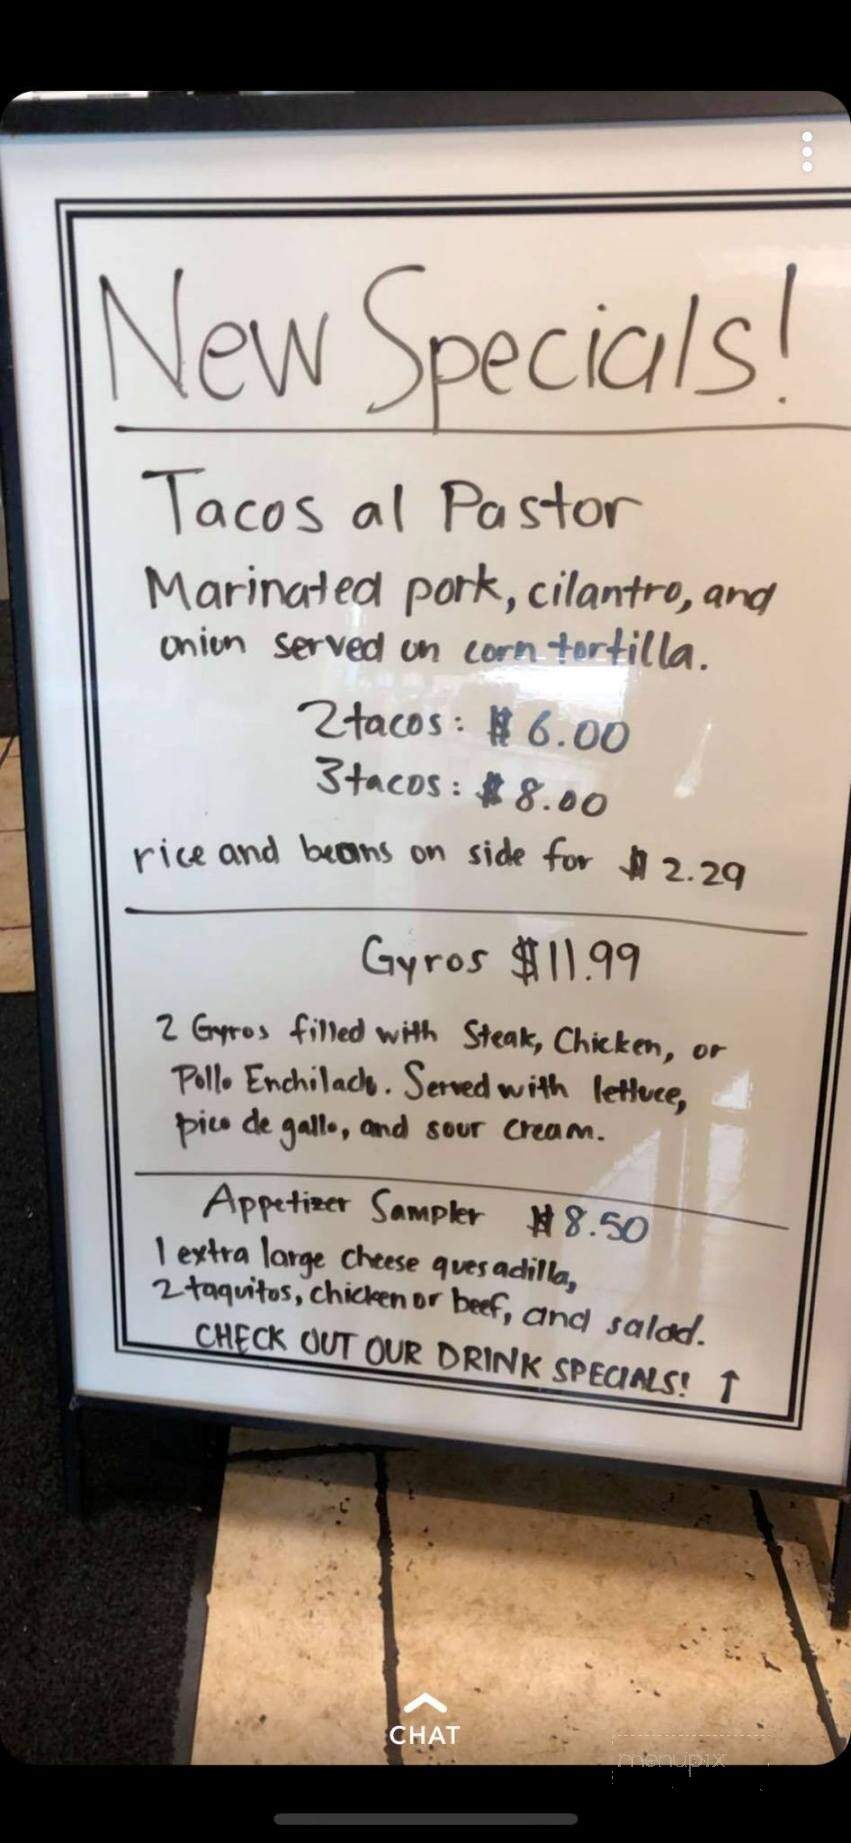 New Specials!
Tacos al Pastor
Marinated pork, cilantro, and
onion served on corn tortilla.
2 tacos: $6.00
3 tacos: $8.00
rice and beans on side for $2.29
Gyros $11.99
2 Gyros filled with Steak, Chicken, or
Pollo Enchilado. Served with lettuce,
pico de gallo, and sour cream.
Appetizer Sampler $8.50
1 extra large cheese quesadilla,
2 taquitos, chicken or beef, and salad.
CHECK OUT OUR DRINK SPECIALS! ↑
CHAT
menupix